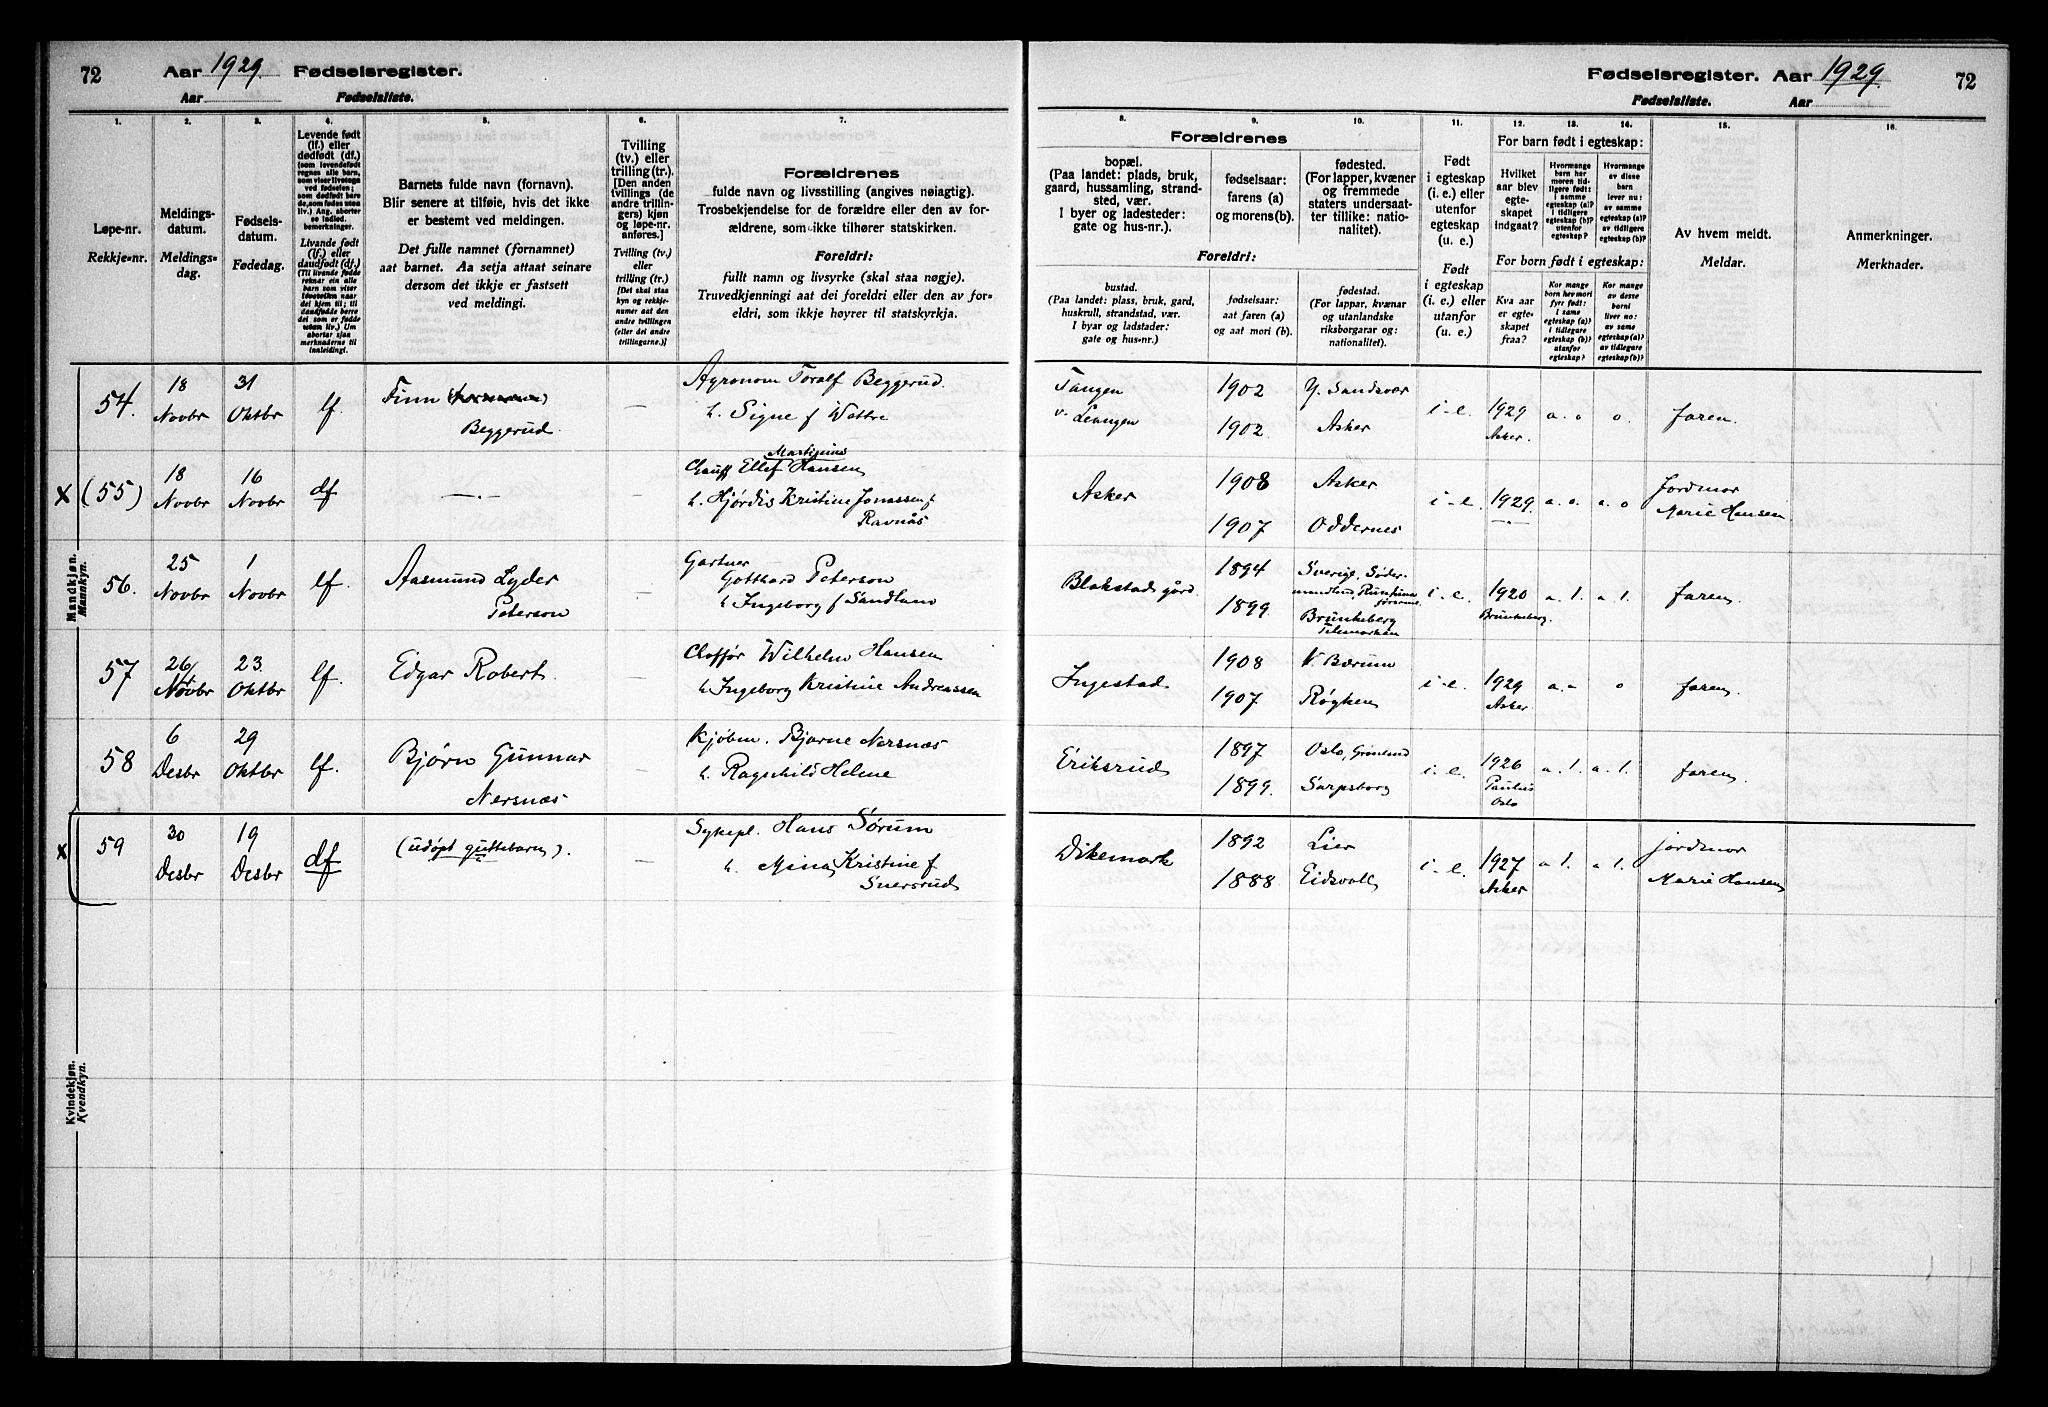 72 Aar 1929. Fødselsregister.
Aar Fødselsliste.
Fødselsregister. Aar 1929. 72
Fødselsliste. Aar
1. 2. 3. 4. 5. 6. 7.
8. 9. 10. 11. 12. 13. 14. 15. 16.
Løpe-nr.
Rekkje-nr.
Meldings-
datum.
Meldings-
dag.
Fødsels-
datum.
Fødedag.
Levende født
(lf.) eller
dødfødt (df.)
(som levendefødt
regnes alle barn,
som viser livstegn
ved fødselen;
som dødfødt bare
de, som fødes uten
liv.) Ang. aborter
se indled.
bemerkninger.
Livande fødd
(lf.) eller
daudfødt (df.)
Barnets fulde navn (fornavn).
Blir senere at tilføie, hvis det ikke
er bestemt ved meldingen.
Det fulle namnet (fornamnet)
aat barnet. Aa setja attaat seinare
dersom det ikkje er fastsett
ved meldingi.
Tvilling
(tv.) eller
trilling (tr.).
[Den anden
tvillings (de
andre trillin-
gers) kjøn
og løpe-nr.
anføres.]
Tvilling (tv.)
eller
trilling (tr.)
[Det skal staa
kyn og rekkje-
numer aat den
andre tvillingen
(eller dei andre
trillingarne.)]
Forældrenes
fulde navn og livsstilling (angives nøiagtig).
Trosbekjendelse for de forældre eller den av for-
ældrene, som ikke tilhører statskirken.
Foreldri:
fullt namn og livsyrke (skal staa nøgje).
Truvedkjenningi aat dei foreldri eller den av for-
eldri, som ikkje høyrer til statskyrkja.
Forældrenes
bopæl.
(Paa landet: plads, bruk,
gaard, hussamling, strand-
sted, vær.
I byer og ladesteder:
gate og hus-nr.).
fødselsaar:
farens (a)
og morens (b).
fødested.
(For lapper, kvæner
og fremmede
staters undersaat-
ter tillike: natio-
nalitet).
Foreldri:
bustad.
(Paa landet: plass, bruk, gard,
huskrull, strandstad, vær.
I byar og ladstader:
gate og hus-nr.)
fødselsaar:
aat faren (a)
og aat mori (b).
fødestad.
(For lappar, kvænar
og utanlandske
riksborgarar og:
nationalitet).
Født
i egteskap
(i. e.) eller
utenfor
egteskap
(u. e.)
Født
i egteskap
(i. e.) eller
utanfor
(u. e.)
For barn født i egteskap:
Hvilket
aar blev
egte-
skapet
indgaat?
Hvormange
barn har
moren tid-
ligere født:
i samme
egteskap (a)?
i tidligere
egteskap (b)?
utenfor
egteskap?
Hvormange
av disse
barn
lever nu:
av samme
egteskap (a)?
av tidligere
egteskap (b)?
For born født i egteskap:
Kva aar
er egte-
skapet
fraa?
Kor mange
born hev mori
fyrr født:
i same
egteskap (a)?
i tidlegare
egteskap (b)?
utanfor
egteskap?
Kor mange
av desse
borni
liver no:
av same
egteskap (a)?
av tidlegare
egteskap (b)?
Av hvem meldt.
Meldar.
Anmerkninger.
Merknader.
Mandkjøn.
Mannkyn.
54. 18 Novbr 31 Oktbr lf. Finn
Beggerud. — Agronom Toralf Beggerud.
h. Signe f Wettre
Tangen
v. Leangen 1902 1902. Y. Sandsvær Asker i-e. 1929 Asker. a. o o. faren.
x (55) 18 Novbr 16 Novbr df —.— Chauff Ellef Martinius Hansen
h. Hjørdis Kristine Jonassen f
Ravnås
Asker 1908 1907 Asker Oddernes i-e. 1929. a. o. a. o Jordmor
Marie Hansen
56. 25 Novbr 1 Novbr lf. Aasmund Lyder
Peterson — Gartner
Gotthard Peterson
h Ingeborg f Sandlam
Blakstad gård. 1894 1899. Sverige, Søder-
manland,
Brunkeberg
Telemarken i-e. 1920 Brunkeberg. a. 1. a. 1. faren.
57 26/ Novbr 23. Oktbr lf. Edgar Robert. — Chaffør Wilhelm Hansen
h Ingeborg Kristine Andreassen
Ingestad 1908 1907. V. Bærum Røyken i-e. 1929 Asker. a.- o faren.
58 6 Desbr 29 Oktbr lf. Bjørn Gunnar
Nersnæs — Kjøbm. Bjarne Nersnæs
h. Ragnhild Helene
Eriksrud 1897 1899. Oslo, Grønland Sarpsborg i-e. 1926 Paulus Oslo a. 1. a. 1. faren.
x 59 30 Desbr 19 Desbr df (udøpt guttebarn). — Sykepl. Hans Sørum
h. Mina Kristine f
Suersrud
Dikemark 1892 1888. Lier Eidsvoll i-e. 1927 Asker a 1. a 1. jordmor
Marie Hansen
Kvindekjøn.
Kvendkyn.